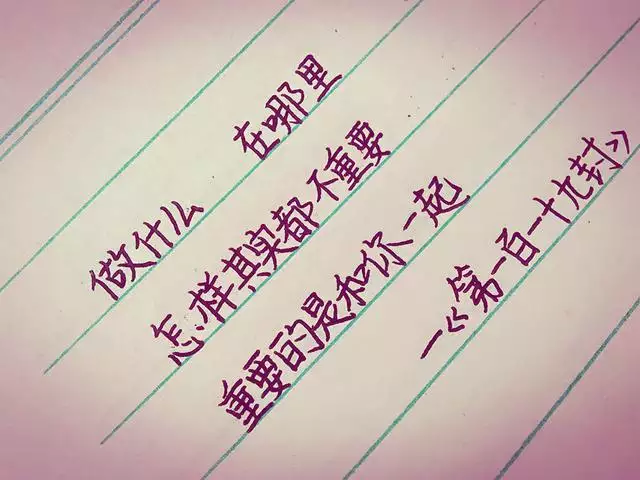 做什么 在哪里
怎样其实都不重要
重要的是和你一起
—《第一百一十九封》